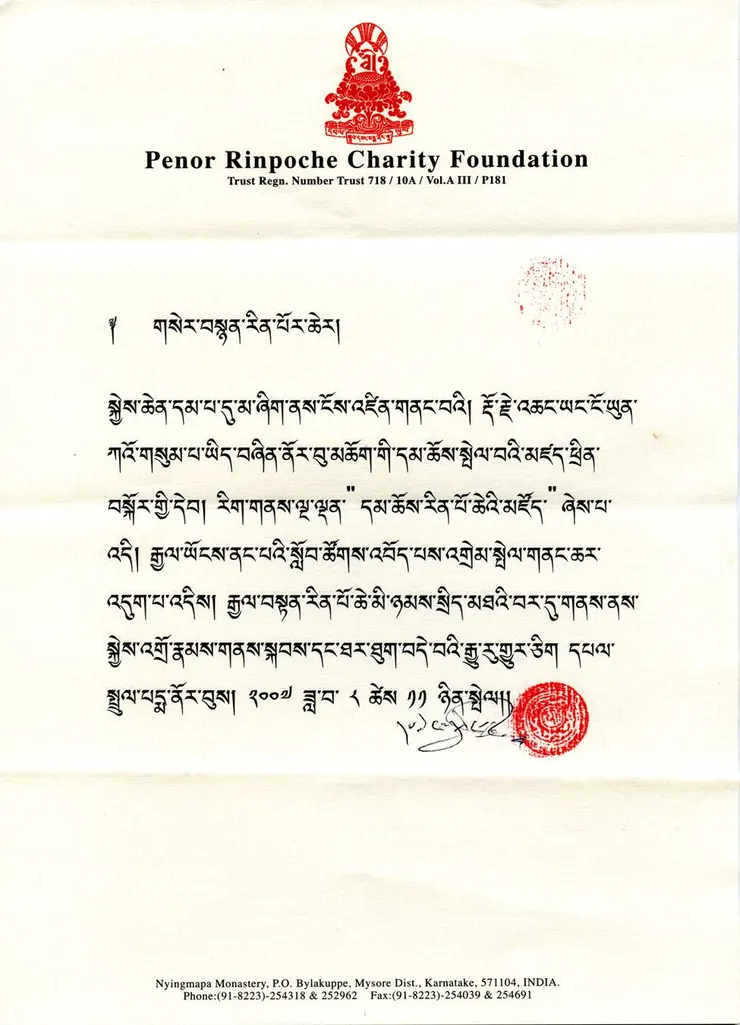 Penor Rinpoche Charity Foundation
Trust Regn. Number Trust 718 / 10A / Vol.A III / P181
༈ གསེར་བསྙན་རིན་པོར་ཆེར།
སྐྱེས་ཆེན་དམ་པ་དུ་མ་ཞིག་ནས་ངོས་འཛིན་གནང་བའི། རྡོ་རྗེ་འཆང་ཡང་ངོ་ཡུན་
ཀའོ་གསུམ་པ་ཡིད་བཞིན་ནོར་བུ་མཆོག་གི་དམ་ཆོས་སྤེལ་བའི་མཛད་ཕྲིན་
བསྐོར་གྱི་དེབ། རིག་གནས་ལྔ་ལྡན་"དམ་ཆོས་རིན་པོ་ཆེའི་མཛོད་"ཞེས་པ་
འདི། རྒྱལ་ཡོངས་ནང་པའི་སློབ་ཚོགས་འབོད་པས་འགྲེམ་སྤེལ་གནང་ཆར་
འདུག་པ་འདིས། རྒྱལ་བསྟན་རིན་པོ་ཆེ་མི་ཉམས་སྲིད་མཐའི་བར་དུ་གནས་ནས་
སྐྱེས་འགྲོ་རྣམས་གནས་སྐབས་དང་ཐར་ཐུག་བདེ་བའི་རྒྱུ་རུ་གྱུར་ཅིག དཔལ་
སྤྲུལ་པདྨ་ནོར་བུས། ༢༠༠༧ ཟླ་བ་ ༨ ཚེས ༡༡ ཉིན་སྤེལ།།
Nyingmapa Monastery, P.O. Bylakuppe, Mysore Dist., Karnatake, 571104, INDIA.
Phone:(91-8223)-254318 & 252962 Fax:(91-8223)-254039 & 254691